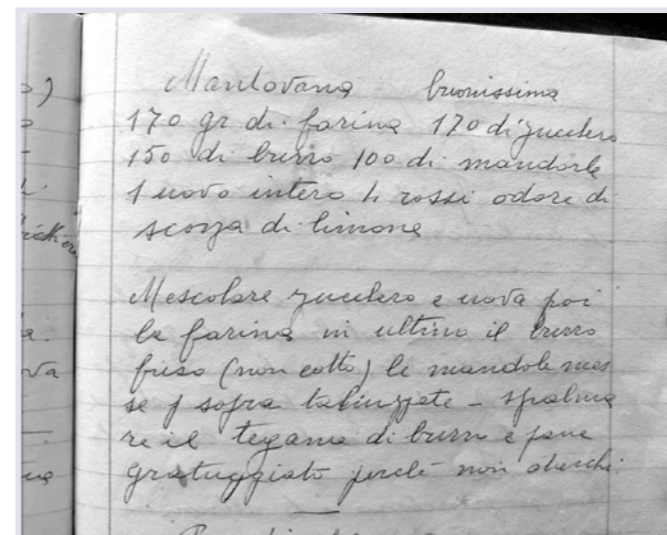 Mantovana buonissima
170 gr di farina 170 di zucchero
150 di burro 100 di mandorle
1 uovo intero 4 rossi odore di
scorza di limone
Mescolare zucchero e uova poi
la farina in ultimo il burro
fuso (non cotto) le mandole mes
se sopra tagliuzzate - spalma
re il tegame di burro e pane
gratuggiato perchè non attacchi.